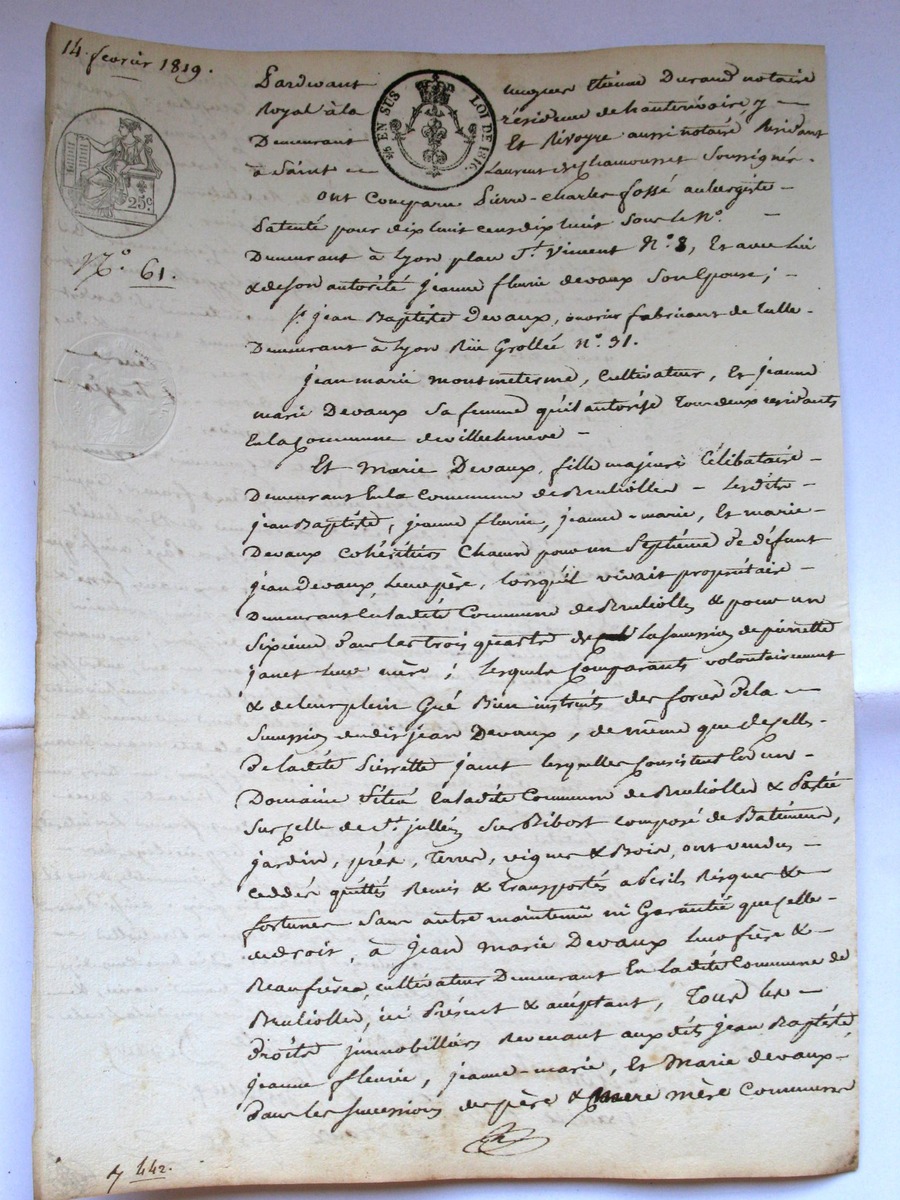 14 fevrier 1819.
Pardevant Hugues Etienne Durand notaire
Royal à la résidence de hauterivoire y
Demeurant Et Rivoyre aussi notaire Résidant
à Saint Laurent de Chamousset Soussignés.
EN SUS LOI DE 1816.
25c
N° 61.
ont Comparu Pierre-Charles fossé aubergiste
Patenté pour dix huit cens dix huit Sous le N°.
Demeurant à Lyon place St. Vincent N° 8, Et avec lui
& de son autorité jeanne fleurie devaux Son Epouse;
Sr. jean Baptiste Devaux, ouvrier fabricant de tulle
Demeurant à Lyon Rüe Grollée N°. 31.
jean marie monmeterme, Cultivateur, Et jeanne
marie Devaux Sa femme qu'il autorise Tous deux residants
En la Commune de villecheneve
Et Marie Devaux, fille majeure Célibataire
Demeurant En la Commune de Brulliolles - Lesdits
jean Baptiste, jeanne fleurie, jeanne-marie, Et marie
Devaux Cohéritiers Chacun pour un Septieme de défunt
jean Devaux, Leur père, lorsqu'il vivait propriétaire
Demeurant En ladite Commune de Brulliolles & pour un
Sixieme dans les trois quarts de la Succession de pierrette
janet Leur mère; Lesquels Comparants volontairement
& de leur plein Gré Bien instruits des forces de la
Succession dudit jean Devaux, de même que de Celle
de ladite Pierrette janet lesquelles Consistent En un
Domaine Situé En ladite Commune de Brulliolles & Partie
Sur Celle de St. jullien Sur Bibost composé de Batiments,
jardin, prés, Terres, vignes & Bois, ont vendus
ceddés quittés Remis & transportés a périls Risques &
fortunes Sans autre maintenüe ni Garantie que Celle
de droit, à Jean Marie Devaux Leur frère &
Beaufrère, cultivateur Demeurant En ladite Commune de
Brulliolles, ici Présent & acceptant, Tous les
droits immobilliers Revenant auxdits jean Baptiste
jeanne fleurie, jeanne-marie, Et Marie devaux
dans les Successions de père & mère Commune
442.